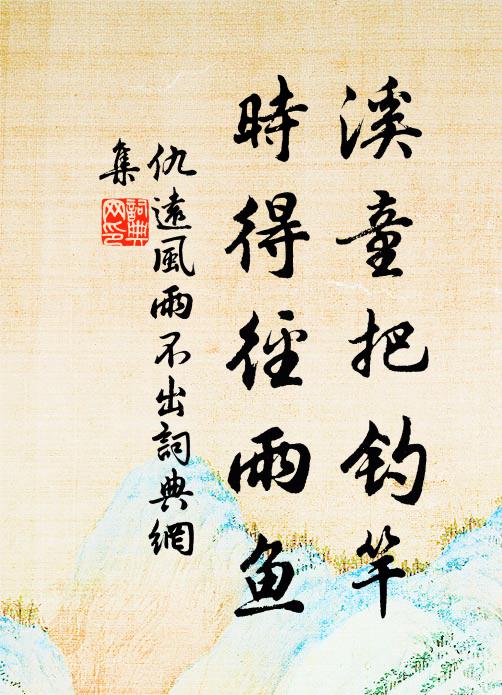 溪童把钓竿
時得徑雨鱼
仇遠風雨不出詞典網
集
詞典
网印